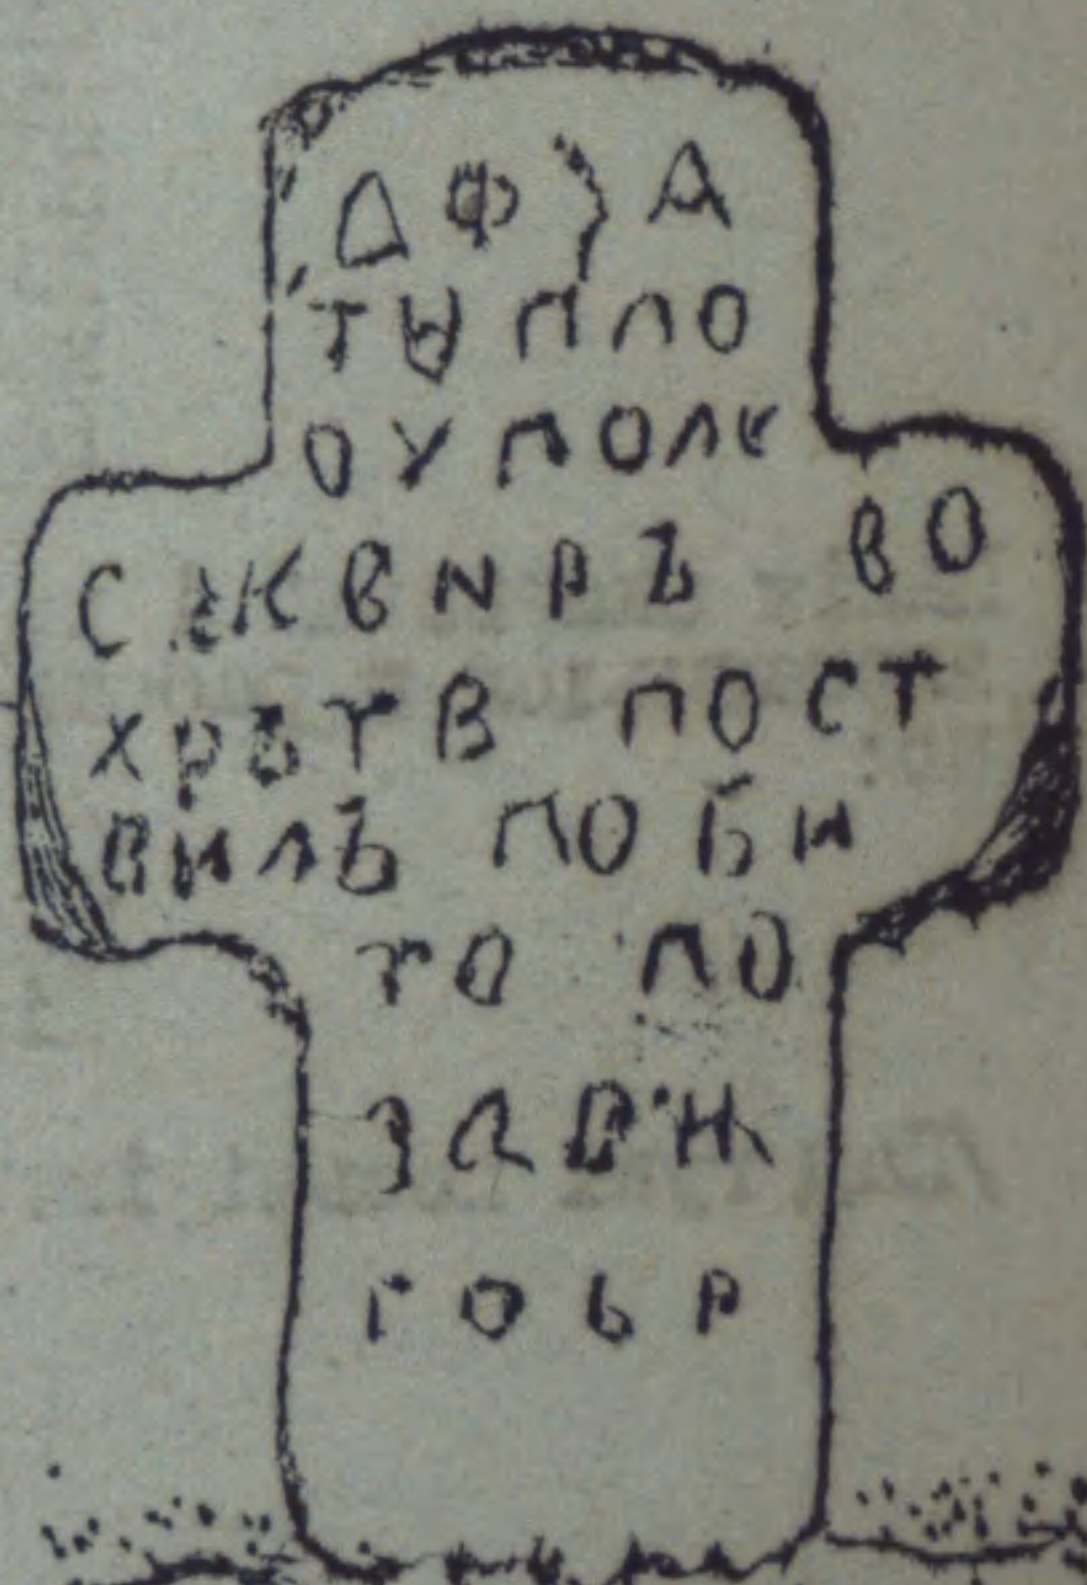 Д Ф А
Т Ѱ П Л О
О У П О Л К
С Ж К В И Р Ъ В О
Х Р Ъ Т В П О С Т
В И Л Ъ П О Б И
Т О П О
З А В Ж
Г О Ь Р